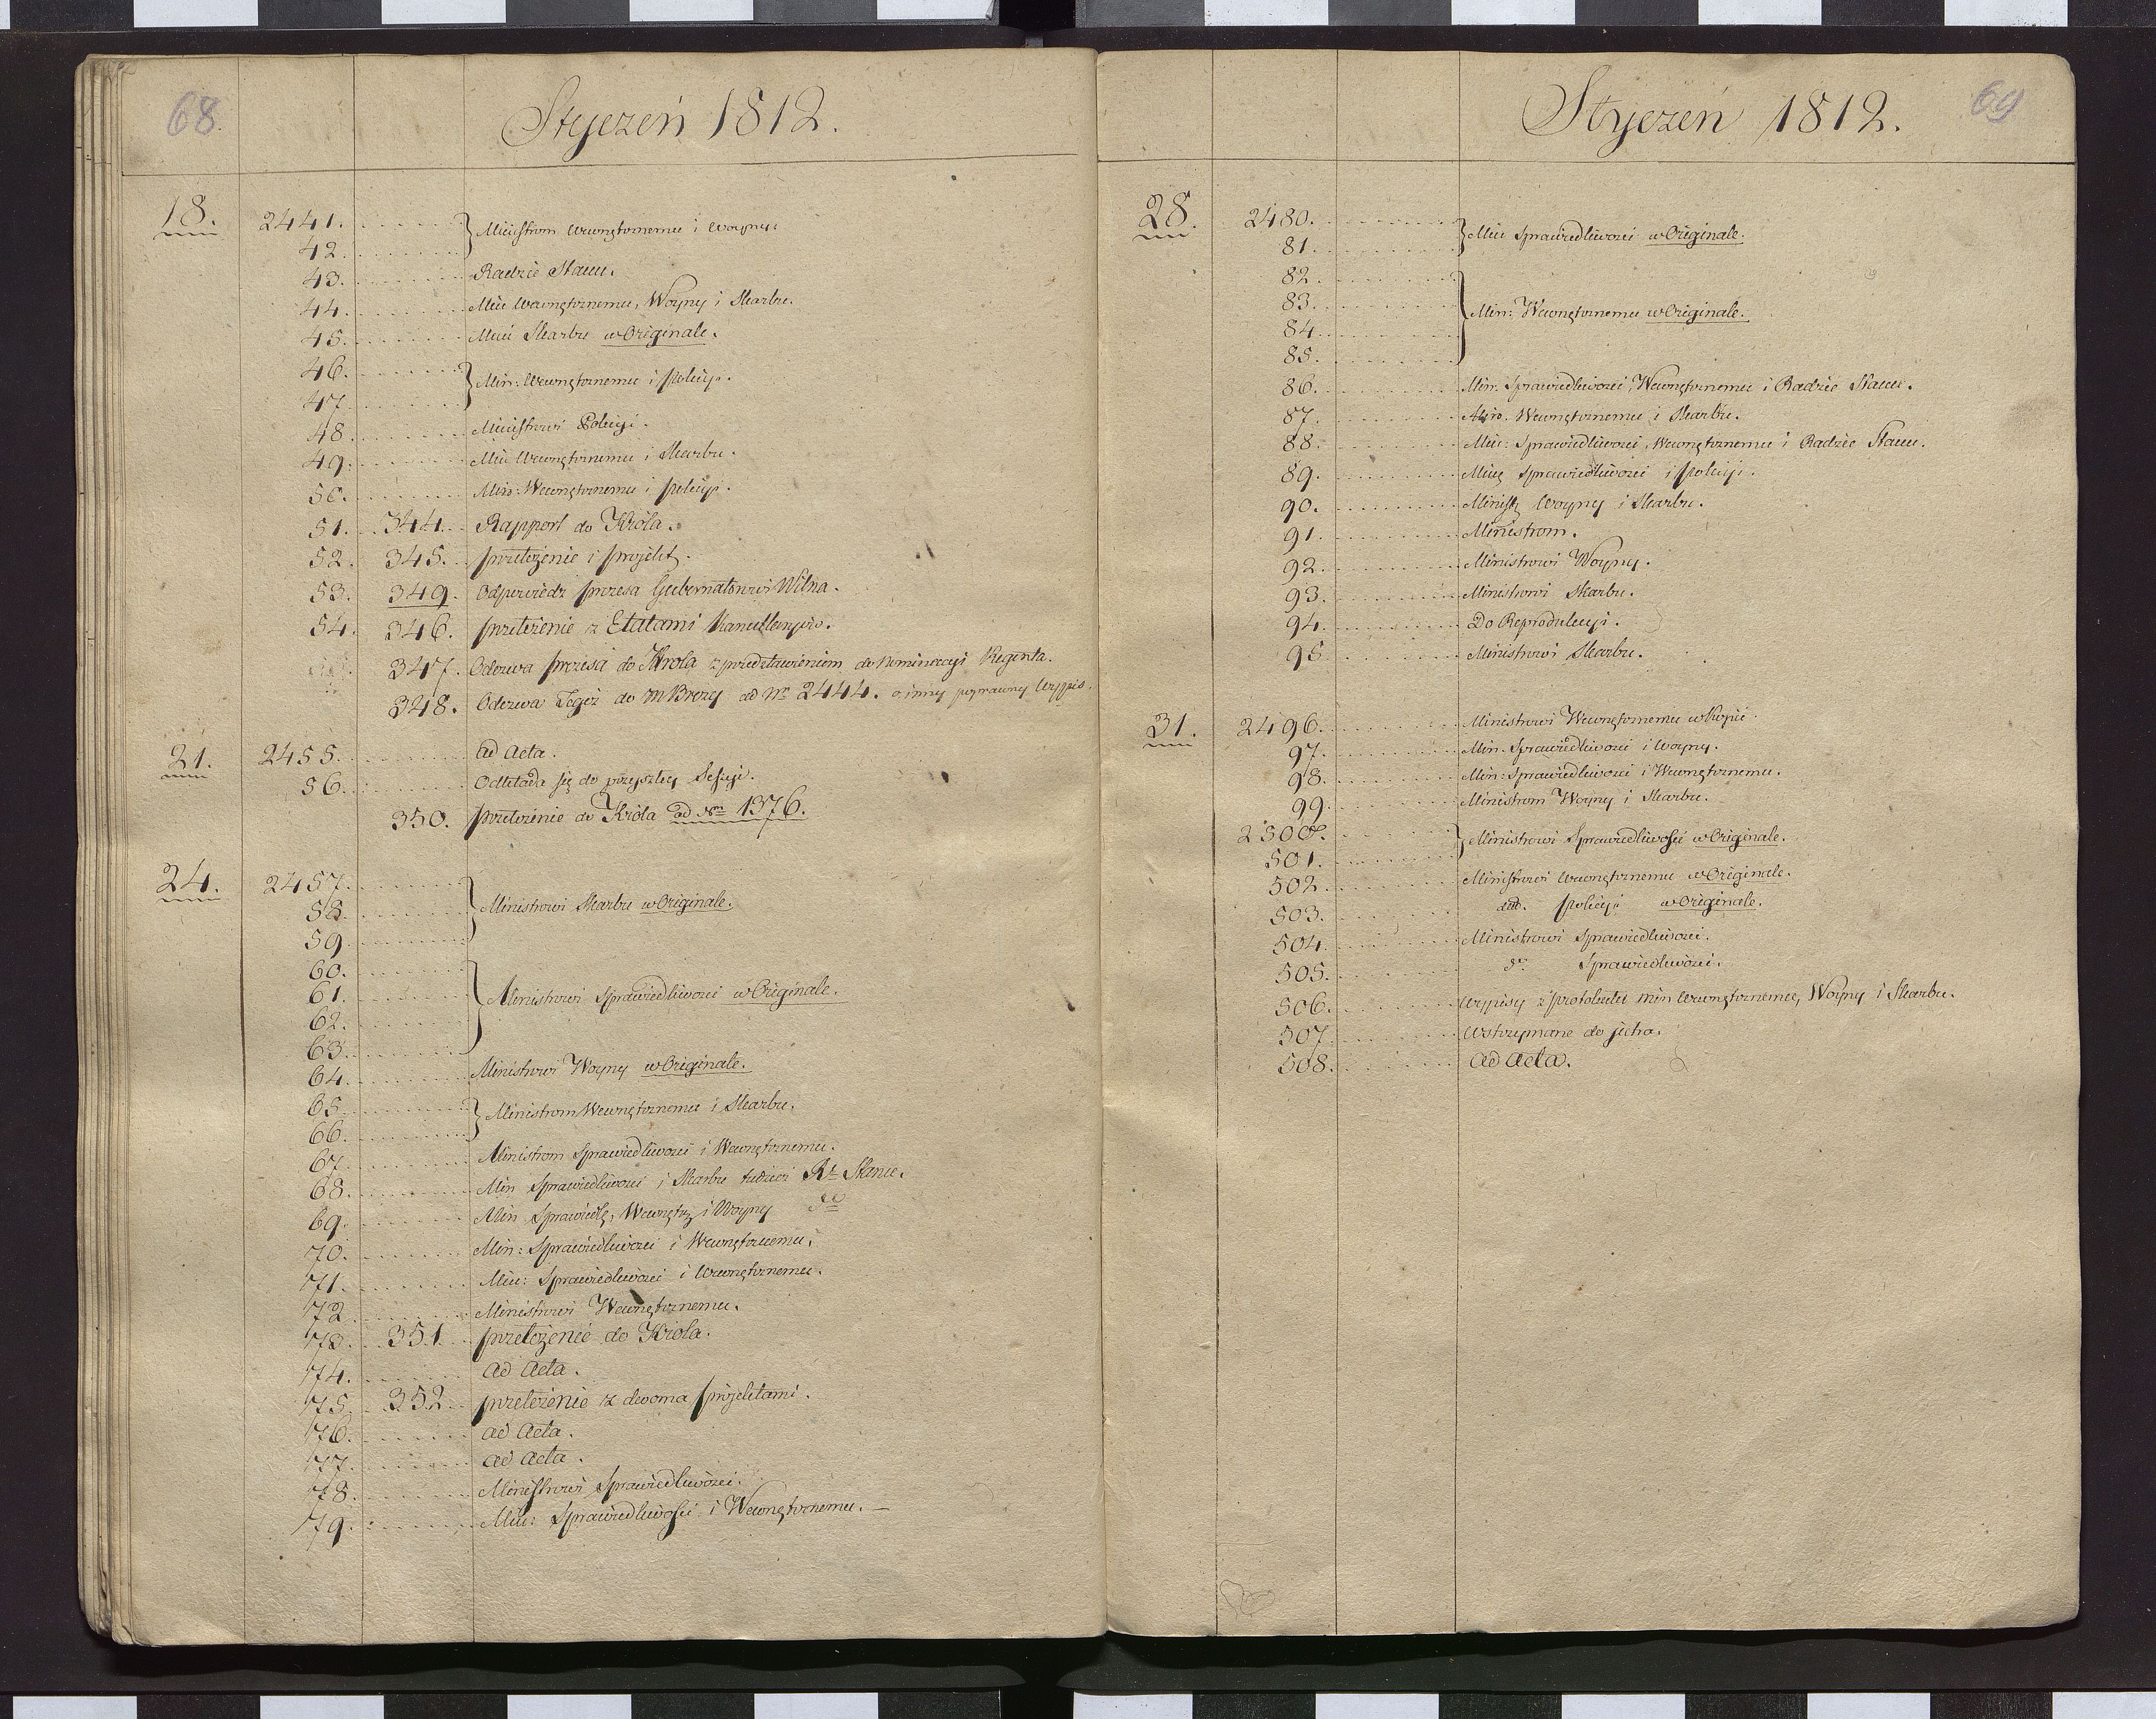 68
Styczeń 1812.
18. 2441. } Ministrom Wewnętrznemu i Woyny.
42.
43. Radzie Stanu.
44. Min Wewnętrznemu, Woyny i Skarbu.
45. Min Skarbu w Originale.
46. } Min: Wewnętrznemu i Policyi.
47.
48. Ministrowi Policyi.
49. Min Wewnętrznemu i Skarbu.
50. Min: Wewnętrznemu i Policyi.
51. 344. Rapport do Króla.
52. 345. przełożenie i projekt.
53. 349. Odpowiedź prezesa Gubernatorowi Wilna.
54. 346. przełożenie z Etatami
347. Odezwa prezesa do Króla z przedstawieniem do Nominacyi Regenta.
348. Odezwa Tegoż do M Brezy ad Nr 2444. o inny poprawny Wyppis.
21. 2455. ad Acta.
56. Odkłada się do przyszłey Sessyi.
350. przełożenie do Króla ad Nrm 1376.
24. 2457. } Ministrowi Skarbu w Originale.
58.
59.
60. } Ministrowi Sprawiedliwości w Originale.
61.
62.
63.
64. Ministrowi Woyny w Originale.
65. } Ministrom Wewnętrznemu i Skarbu.
66.
67. Ministrom Sprawiedliwości i Wewnętrznemu.
68. Min Sprawiedliwości i Skarbu tudzież Rz Stanu.
69. Min Sprawiedl, Wewnętrz i Woyny do
70. Min: Sprawiedliwości i Wewnętrznemu.
71. Min: Sprawiedliwości i Wewnętrznemu.
72. Ministrowi Wewnętrznemu.
73. 351. przełożenie do Króla.
74. ad Acta.
75. 352. przełożenie z dwoma projektami.
76. ad Acta.
77. ad Acta.
78. Ministrowi Sprawiedliwości.
79. Min: Sprawiedliwości i Wewnętrznemu. —
69
Styczeń 1812.
28. 2480. } Min Sprawiedliwości w Originale.
81.
82. } Min: Wewnętrznemu w Originale.
83.
84.
85.
86. Min. Sprawiedliwości, Wewnętrznemu i Radzie Stanu.
87. Min. Wewnętrznemu i Skarbu.
88. Min: Sprawiedliwości, Wewnętrznemu i Radzie Stanu.
89. Min Sprawiedliwości i Policyi.
90. Ministr Woyny i Skarbu.
91. Ministrom.
92. Ministrowi Woyny.
93. Ministrowi Skarbu.
94. Do Reprodukcyi.
95. Ministrowi Skarbu.
31. 2496. Ministrowi Wewnętrznemu w Kopii.
97. Min. Sprawiedliwości i Woyny.
98. Min: Sprawiedliwości i Wewnętrznemu.
99. Ministrom Woyny i Skarbu.
2500. } Ministrowi Sprawiedliwości w Originale.
501.
502. Ministrowi Wewnętrznemu w Originale.
503. Policyi w Originale.
504. Ministrowi Sprawiedliwości.
505. do Sprawiedliwości.
506. Wypisy z protokułu Min Wewnętrznemu, Woyny i Skarbu.
507. Wstrzymane do jutra.
508. Ad Acta.